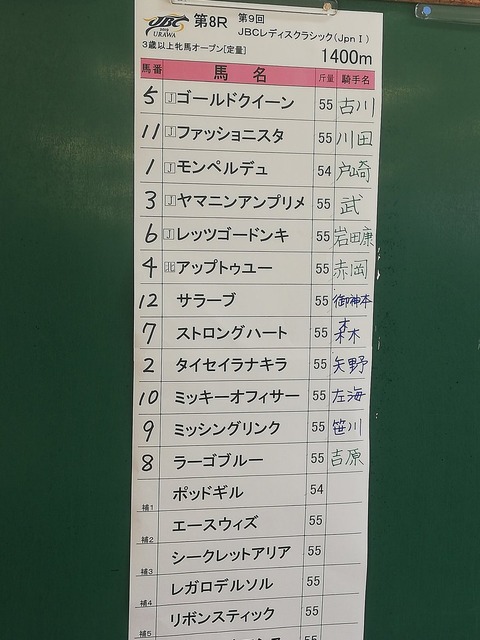 JBC 2019 URAWA 第8R 第9回
JBCレディスクラシック(JpnⅠ)
3歳以上牝馬オープン[定量] 1400m
馬番 馬名 斤量 騎手名
5 J ゴールドクイーン 55 古川
11 J ファッショニスタ 55 川田
1 J モンペルデュ 54 戸崎
3 J ヤマニンアンプリメ 55 武
6 J レッツゴードンキ 55 岩田康
4 北 アップトゥユー 55 赤岡
12 サラーブ 55 御神本
7 ストロングハート 55 森
2 タイセイラナキラ 55 矢野
10 ミッキーオフィサー 55 左海
9 ミッシングリンク 55 笹川
8 ラーゴブルー 55 吉原
補1 ポッドギル 54
補2 エースウィズ 55
補3 シークレットアリア 55
補4 レガロデルソル 55
補5 リボンスティック 55